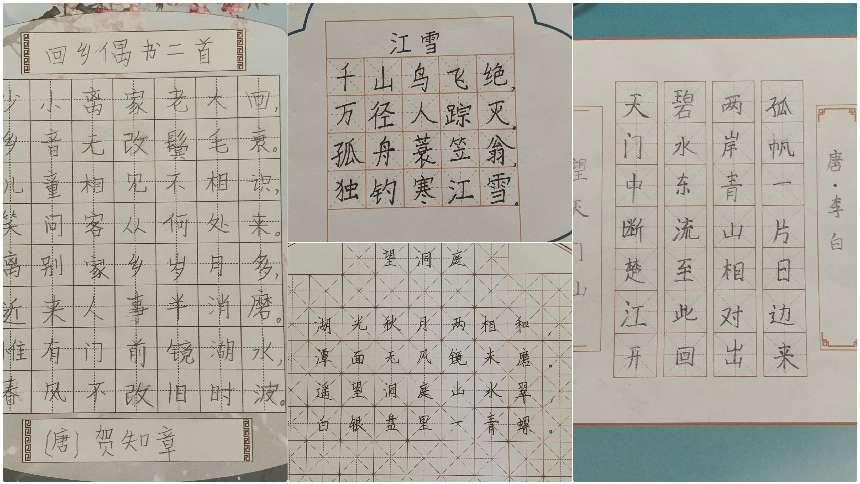 回乡偶书二首
少小离家老大回,
乡音无改鬓毛衰。
儿童相见不相识,
笑问客从何处来。
离别家乡岁月多,
近来人事半消磨。
惟有门前镜湖水,
春风不改旧时波。
(唐)贺知章
江雪
千山鸟飞绝,
万径人踪灭。
孤舟蓑笠翁,
独钓寒江雪。
望洞庭
湖光秋月两相和,
潭面无风镜未磨。
遥望洞庭山水翠,
白银盘里一青螺。
望天门山
天门中断楚江开
碧水东流至此回
两岸青山相对出
孤帆一片日边来
唐·李白